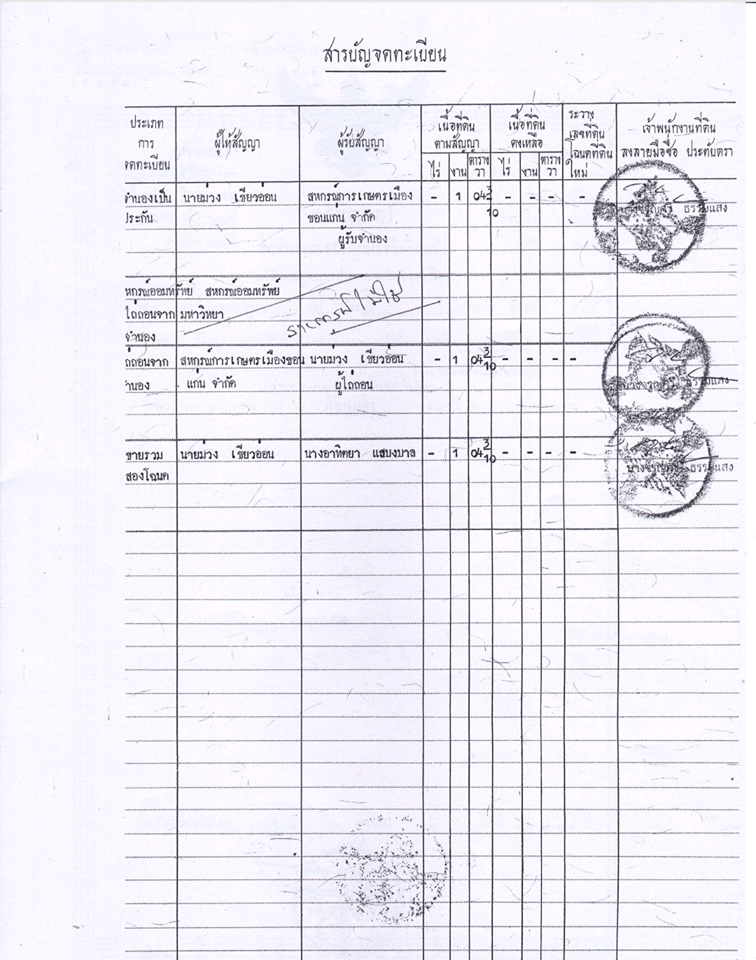 สารบัญจดทะเบียน
ประเภท
การ
จดทะเบียน
ผู้ให้สัญญา
ผู้รับสัญญา
เนื้อที่ดิน
ตามสัญญา
ไร่ งาน ตาราง
วา
เนื้อที่ดิน
คงเหลือ
ไร่ งาน ตาราง
วา
ระวาง
เลขที่ดิน
โฉนดที่ดิน
ใหม่
เจ้าพนักงานที่ดิน
ลงลายมือชื่อ ประทับตรา
จำนองเป็น นายม่วง เขียวอ่อน สหกรณ์การเกษตรเมือง - 1 04 3/10 - - - -
ประกัน ขอนแก่น จำกัด
ผู้รับจำนอง
หกรณ์ออมทรัพย์ สหกรณ์ออมทรัพย์
ไถ่ถอนจาก มหาวิทยา
จำนอง
รายการนี้ไม่ใช้
ไถ่ถอนจาก สหกรณ์การเกษตรเมืองขอน นายม่วง เขียวอ่อน - 1 04 3/10 - - - -
จำนอง แก่น จำกัด ผู้ไถ่ถอน
ขายรวม นายม่วง เขียวอ่อน นางอาทิตยา แสบงบาล - 1 04 3/10 - - - -
สองโฉนด
ธรรมแสง
ธรรมแสง
ธรรมแสง